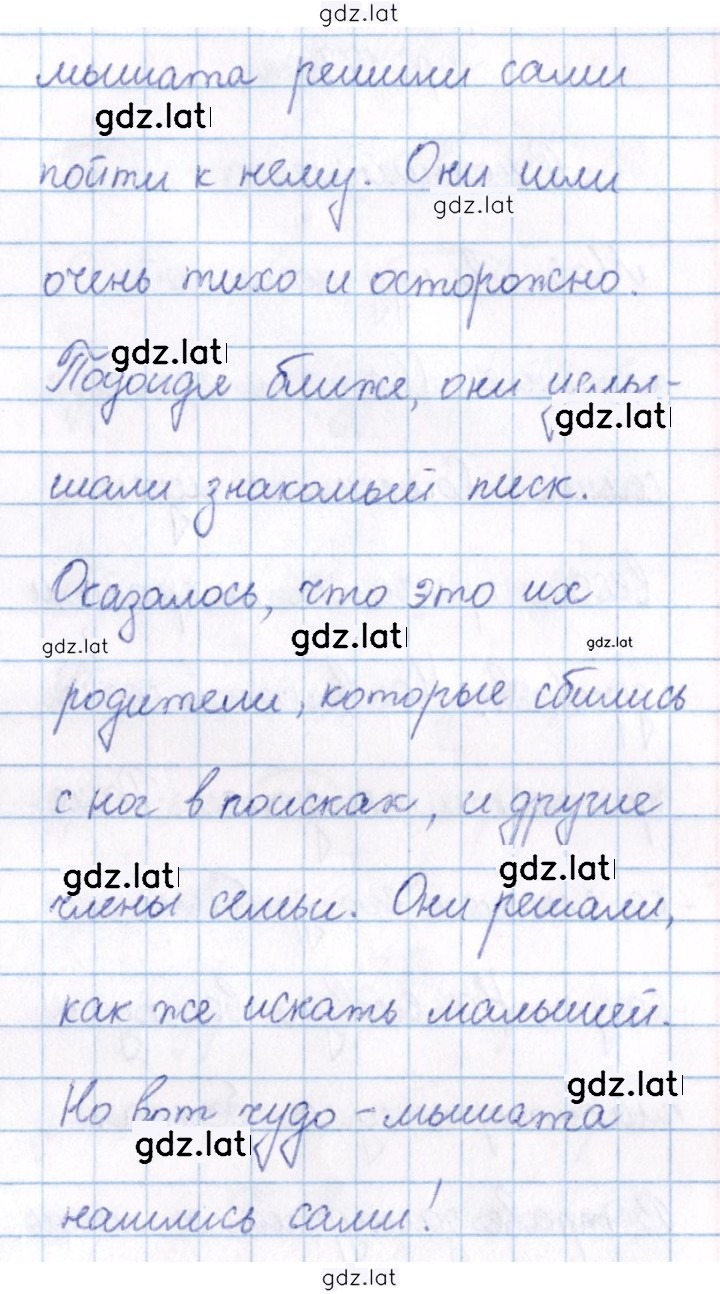 gdz.lat
мышата решили сами
gdz.lat
пойти к нему. Они шли
gdz.lat
очень тихо и осторожно.
gdz.lat
Подойдя ближе, они услы-
gdz.lat
шали знакомый писк.
Оказалось, что это их
gdz.lat gdz.lat gdz.lat
родители, которые сбились
с ног в поисках, и другие
gdz.lat gdz.lat
члены семьи. Они решали,
как же искать малышей.
gdz.lat
Но вот чудо - мышата
gdz.lat
нашлись сами!
gdz.lat